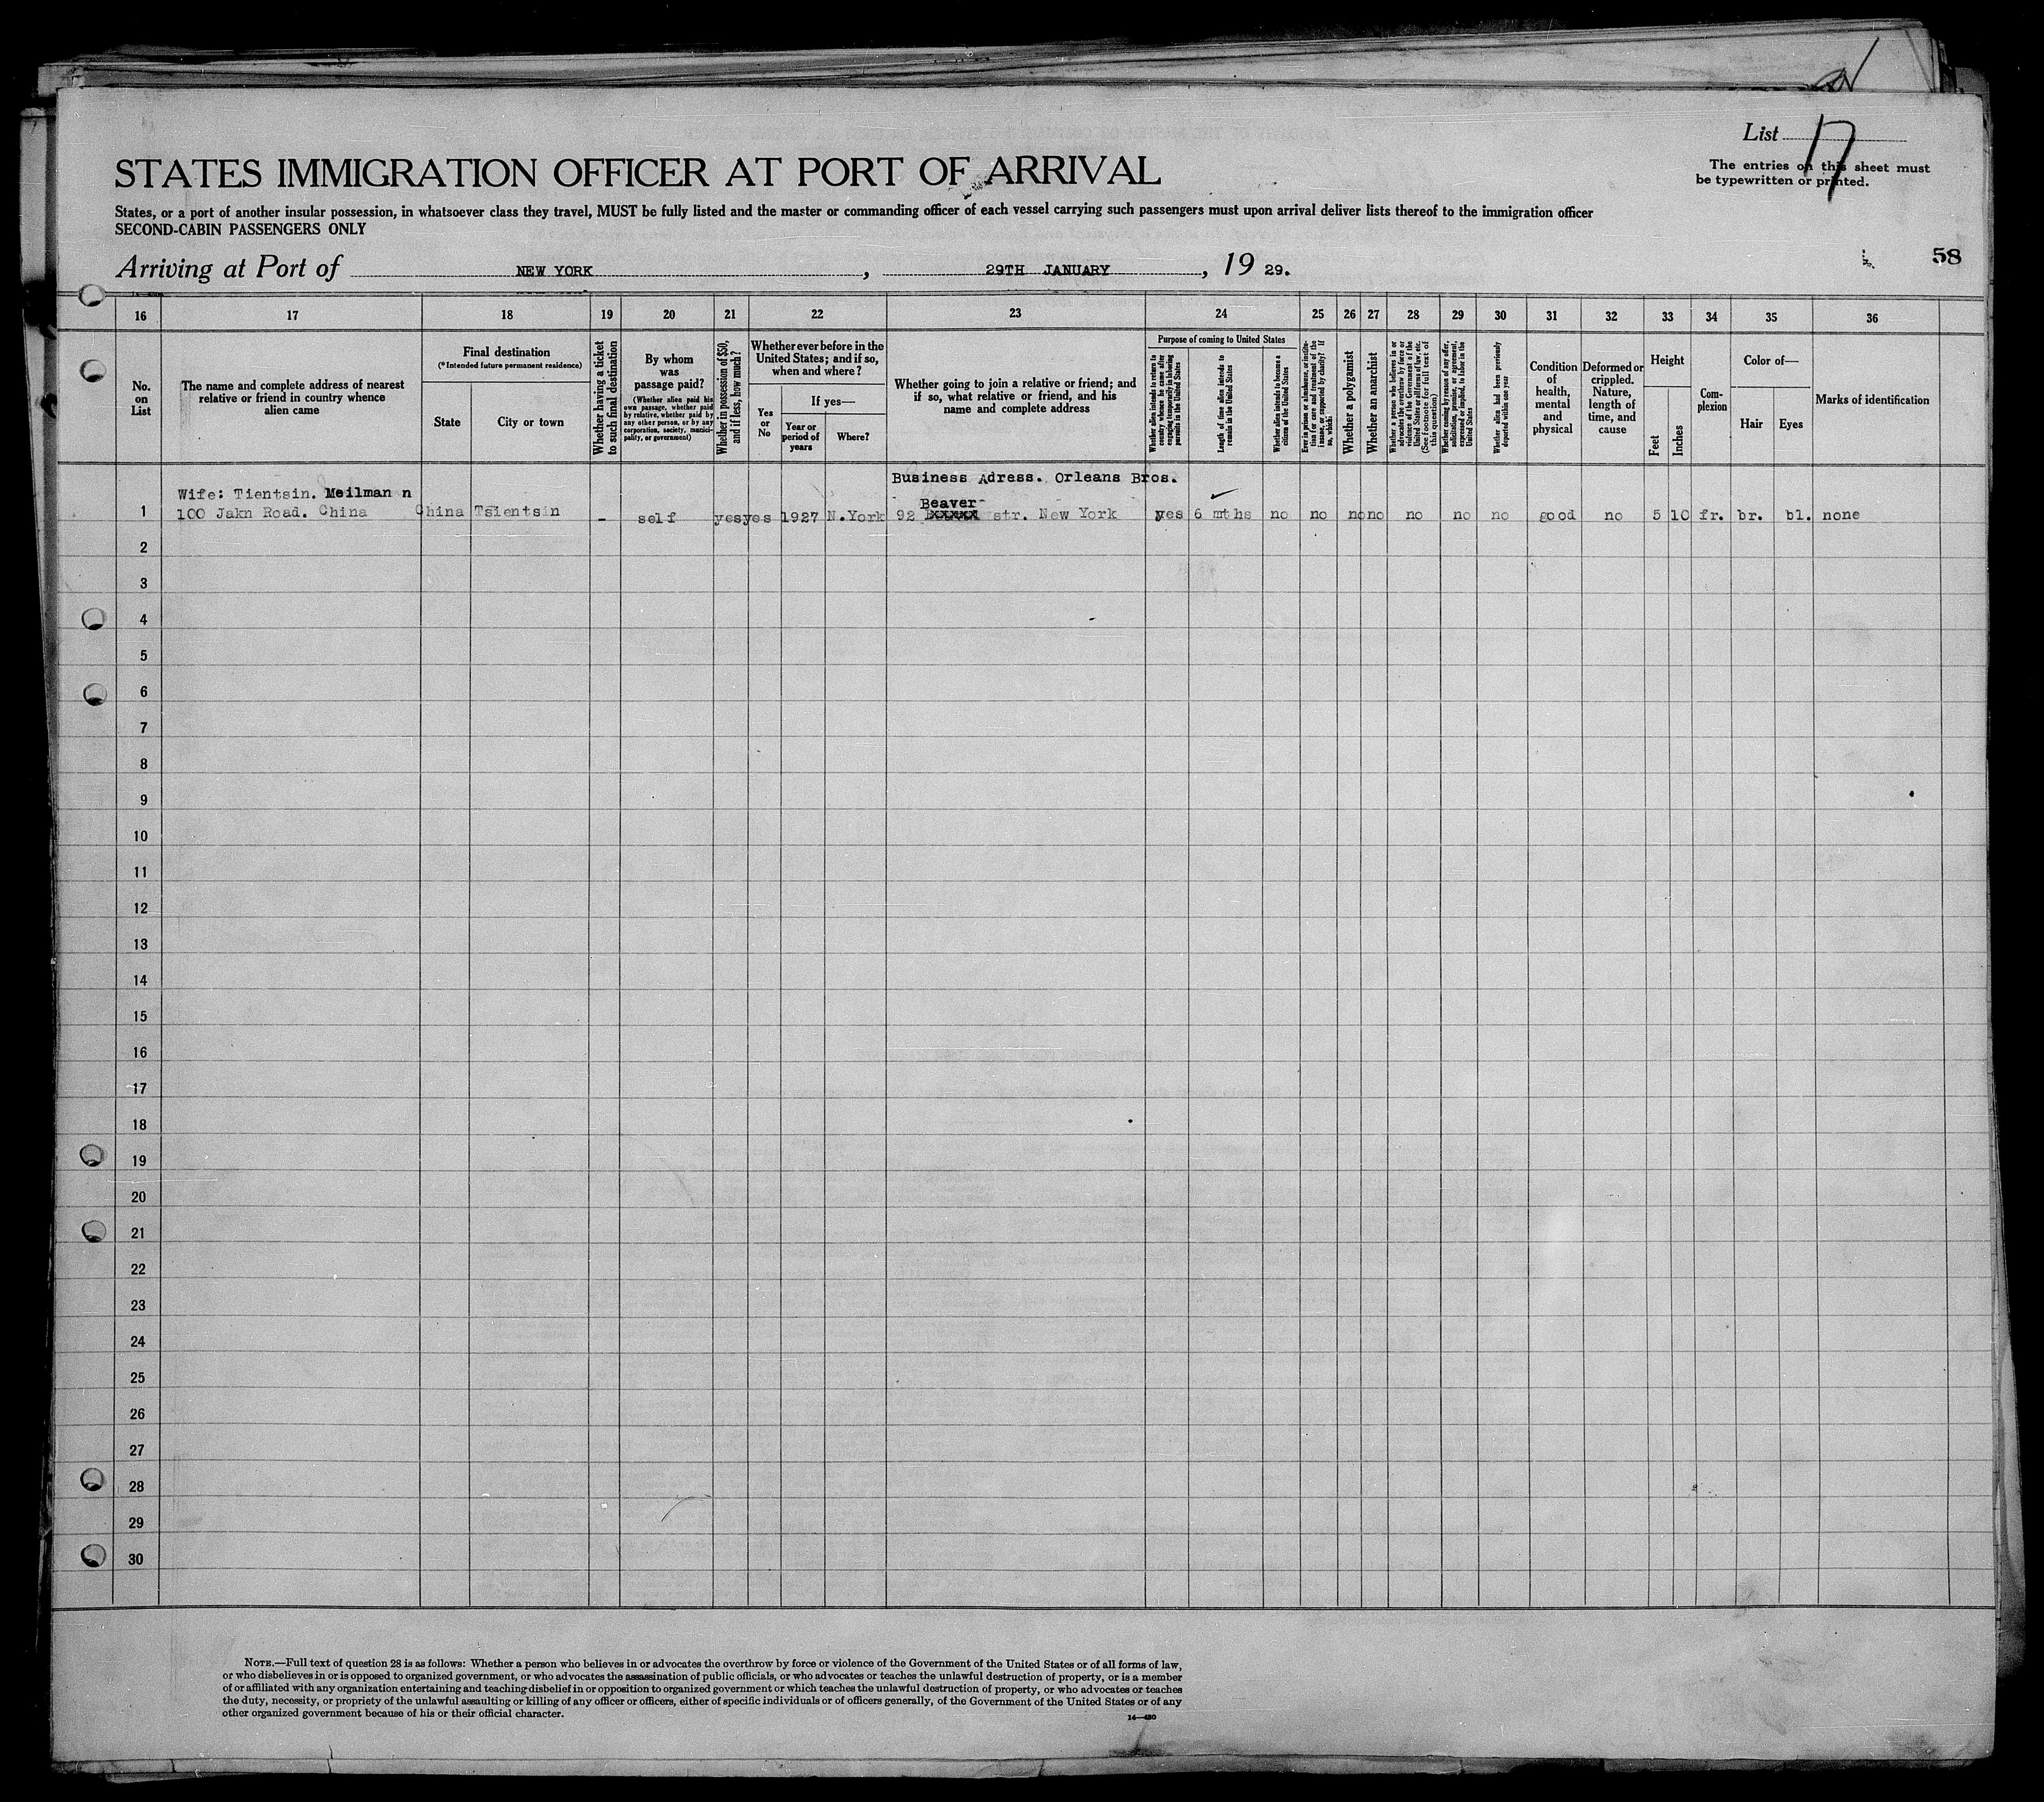 List 17
The entries on this sheet must
be typewritten or printed.
STATES IMMIGRATION OFFICER AT PORT OF ARRIVAL
States, or a port of another insular possession, in whatsoever class they travel, MUST be fully listed and the master or commanding officer of each vessel carrying such passengers must upon arrival deliver lists thereof to the immigration officer
SECOND-CABIN PASSENGERS ONLY
58
Arriving at Port of NEW YORK, 29TH JANUARY, 19 29.
16 17 18 19 20 21 22 23 24 25 26 27 28 29 30 31 32 33 34 35 36
No. on List
The name and complete address of nearest relative or friend in country whence alien came
Final destination
(*Intended future permanent residence)
State
City or town
Whether having a ticket to such final destination
By whom was passage paid?
(Whether alien paid his own passage, whether paid by relative, whether paid by any other person, or by any corporation, society, municipality, or government)
Whether in possession of $50, and if less, how much?
Whether ever before in the United States; and if so, when and where?
Yes or No
If yes—
Year or period of years
Where?
Whether going to join a relative or friend; and if so, what relative or friend, and his name and complete address
Purpose of coming to United States
Whether alien intends to return to country whence he came after engaging temporarily in laboring pursuits in the United States
Length of time alien intends to remain in the United States
Whether alien intends to become a citizen of the United States
Ever in prison or almshouse, or institution for care and treatment of the insane, or supported by charity? If so, which?
Whether a polygamist
Whether an anarchist
Whether a person who believes in or advocates the overthrow by force or violence of the Government of the United States or all forms of law, etc. (See footnote for full text of this question)
Whether coming by reason of any offer, solicitation, promise, or agreement, expressed or implied, to labor in the United States
Whether alien had been previously deported within one year
Condition of health, mental and physical
Deformed or crippled. Nature, length of time, and cause
Height
Feet
Inches
Complexion
Color of—
Hair
Eyes
Marks of identification
Business Adress. Orleans Bros.
Wife: Tientsin. Meilman n
Beaver
1 100 Jakn Road. China China Tsientsin - self yes yes 1927 N.York 92 xxxxx str. New York yes 6 mths no no no no no no no good no 5 10 fr. br. bl. none
2
3
4
5
6
7
8
9
10
11
12
13
14
15
16
17
18
19
20
21
22
23
24
25
26
27
28
29
30
NOTE.—Full text of question 28 is as follows: Whether a person who believes in or advocates the overthrow by force or violence of the Government of the United States or of all forms of law,
or who disbelieves in or is opposed to organized government, or who advocates the assassination of public officials, or who advocates or teaches the unlawful destruction of property, or is a member
of or affiliated with any organization entertaining and teaching disbelief in or opposition to organized government or which teaches the unlawful destruction of property, or who advocates or teaches
the duty, necessity, or propriety of the unlawful assaulting or killing of any officer or officers, either of specific individuals or of officers generally, of the Government of the United States or of any
other organized government because of his or their official character.
14—430